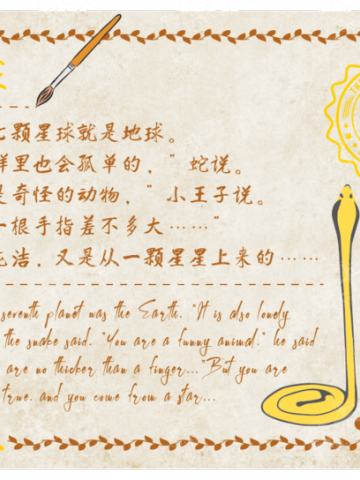 七颗星球就是地球。
群里也会孤单的,”蛇说。
是奇怪的动物,”小王子说。
一根手指差不多大……”
洁,又是从一颗星星上来的……
seventh planet was the Earth. "It is also lonely
the snake said. "You are a funny animal." he said
are no thicker than a finger..."But you are
true, and you come from a star...